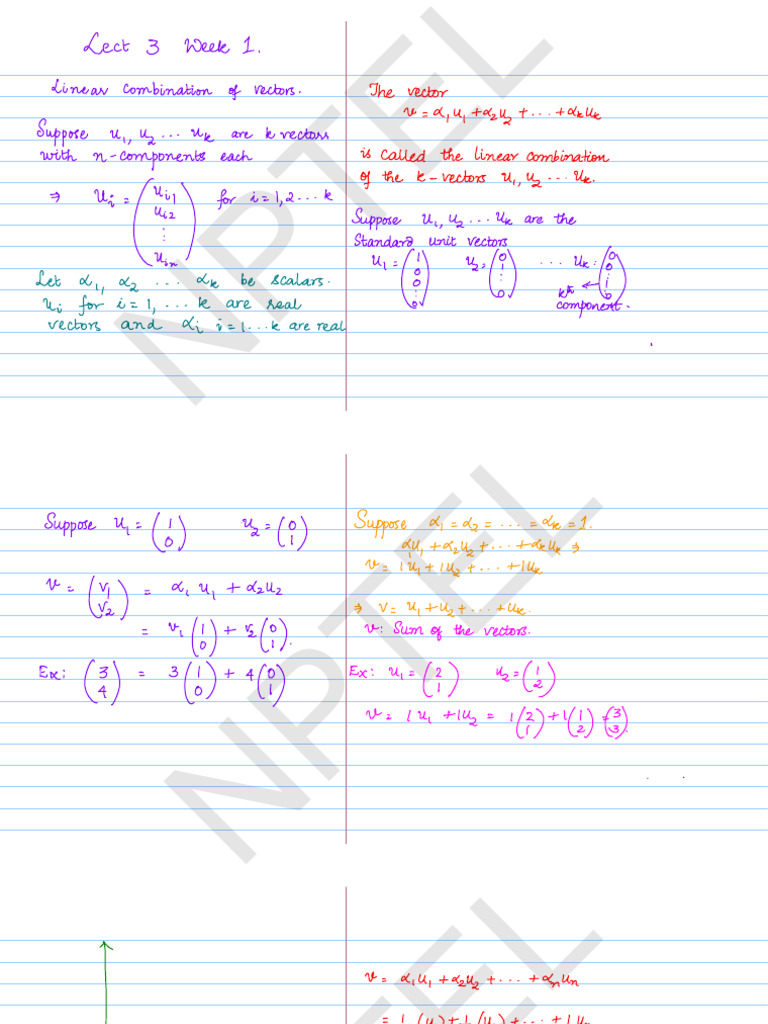 Lect 3 Week 1.
Linear Combination of vectors.
Suppose u₁, u₂ ... uₖ are k vectors
with n-components each
⇒ uᵢ = (uᵢ₁ uᵢ₂ ⋮ uᵢₙ) for i=1,2...k
Let α₁, α₂ ... αₖ be scalars.
uᵢ for i=1, ...k are real
vectors and αᵢ i=1...k are real
The vector
v = α₁u₁+α₂u₂+...+αₖuₖ
is called the linear combination
of the k-vectors u₁, u₂ ... uₖ.
Suppose u₁, u₂ ... uₖ are the
Standard unit vectors
u₁= (1 0 0 ⋮ 0) u₂= (0 1 ⋮ 0) ... uₖ: (0 0 ⋮ 1 ⋮ 0)
kᵗʰ
component.
Suppose u₁ = (1 0) u₂ = (0 1)
v = (v₁ v₂) = α₁ u₁ + α₂u₂
= v₁ (1 0) + v₂ (0 1).
Ex: (3 4) = 3 (1 0) + 4 (0 1)
Suppose α₁ = α₂ = ... = αₖ = 1.
α₁u₁+α₂u₂+...+αₖuₖ ⇒
v = 1u₁+1u₂+...+1uₖ
⇒ v = u₁+u₂+...+uₖ.
v: Sum of the vectors.
Ex: u₁ = (2 1) u₂ = (1 2)
v = 1u₁ +1u₂ = 1(2 1)+1(1 2)=(3 3).
v = α₁u₁+α₂u₂+...+αₙuₙ
NPTEL
NPTEL
NPTEL